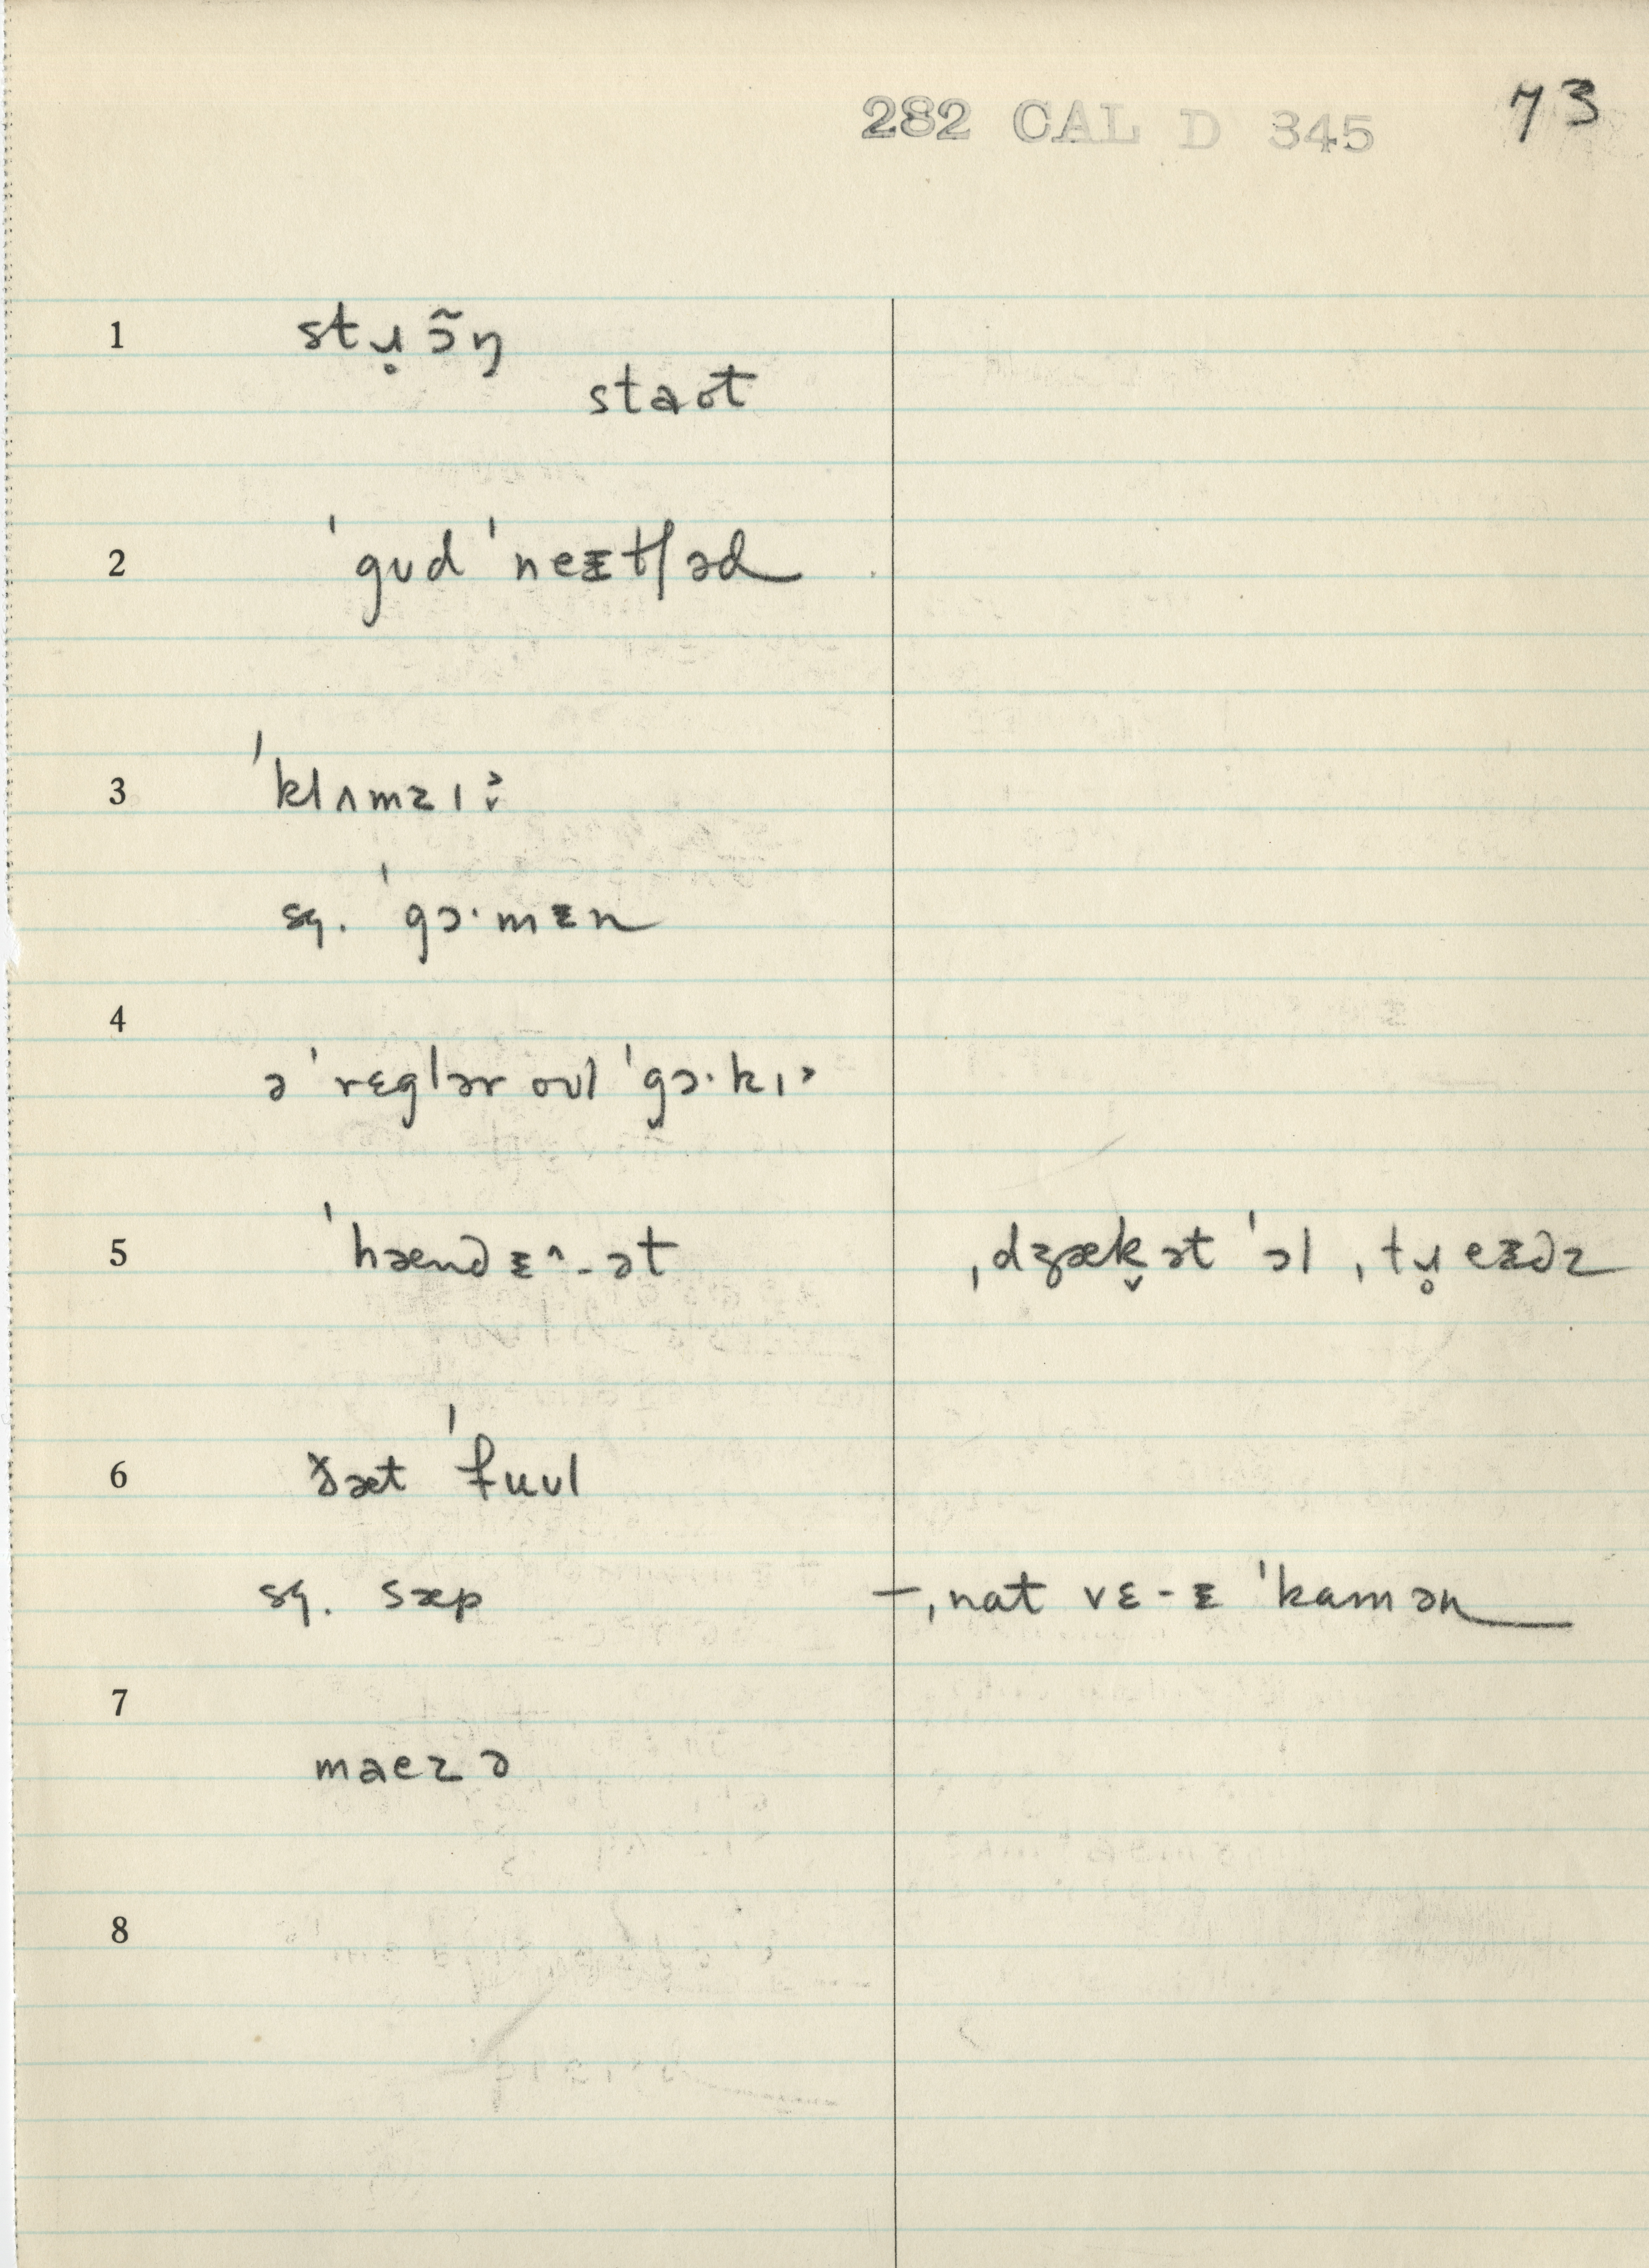 282 CAL D 345 73
1 stɹ̥ɔ̃ŋ
staot
2 ˈgʊd ˈneᵻtʃəd
3 ˈklʌmzɪ˃̬
sq. ˈgɔ·mᵻn
4
ə ˈrɛglər oʊl ˈgɔ·kɪ˃
5 ˈhænd ᵻ^-ət ˌdʒæk̬ət ˈɔl ˌtɹ̥eᵻdz
6 ðæt ˈfuʊl
sq. sæp —ˌnat vɛ-ᵻ ˈkamən
7
maezə
8